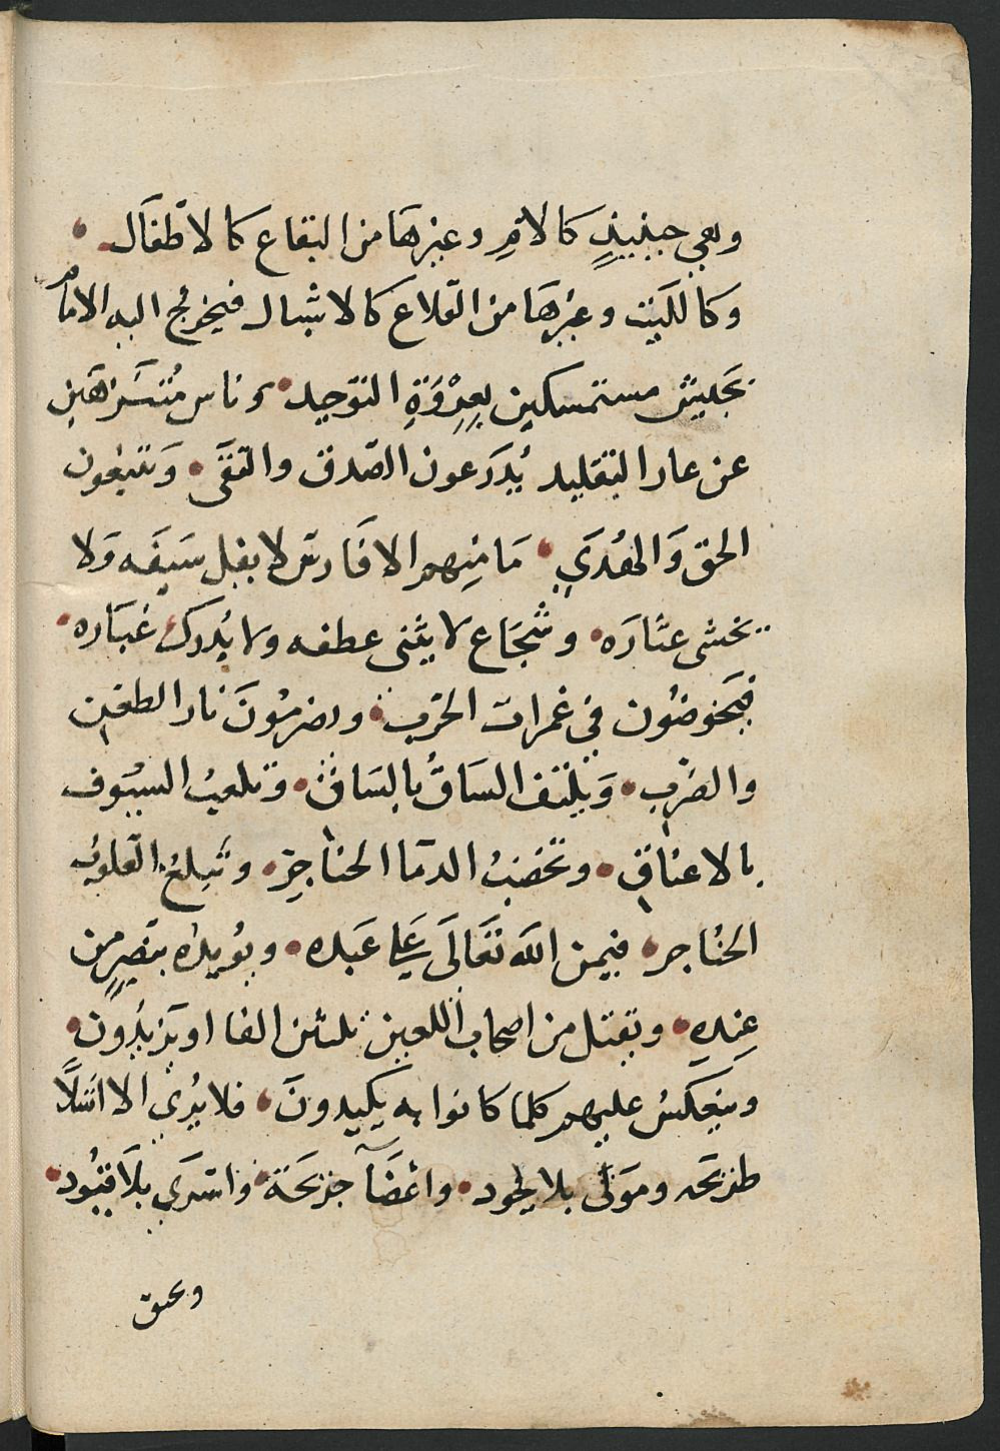 وهي حينيذٍ كالامِ وغيرهَا من البقاع كالاطفَال
وكالليَث وغيُرهَا من القلاع كالاشبال فيخرُج اليه الامام
بجَيش مستمسكين بعِرْوَةِ التوَحيد وناس مُتنَزهَين
عن عار التقليد يُدرَعون الصّدق والتقَى وَيتبعُون
الحق وَالهُدَي مَا منِهم الا فَارس لا يفل سَيفَه وَلا
يخشى عثَارَه وشجَاع لا يثَنى عطفه ولا يُدرك غبَاره
فيَخوضُون في غمرات الحَرب ويضرمُونَ نار الطعَن
والضرَب وَيلتف السَاقُ بالسَاق وتلعبُ السيُوف
بالاعناقِ وتخضبُ الدمَا الخنَاجِر وتبلغُ القلوبُ
الحنُاجر فيمن الله تعَالَى عَلى عَبده ويؤُيدُه بنَصرٍ من
عِندِهِ ويقتل من اصحاب اللعين ثلثين الفا او يَزيدُون
وَينَعكسُ عليهم كلما كانوا به يكيدونَ فلا يُري الا اشَلاً
طريَحه وموَتى بلا لحود واعضَآ جريَحَة واسَرَي بلَا قيُود
وعبق